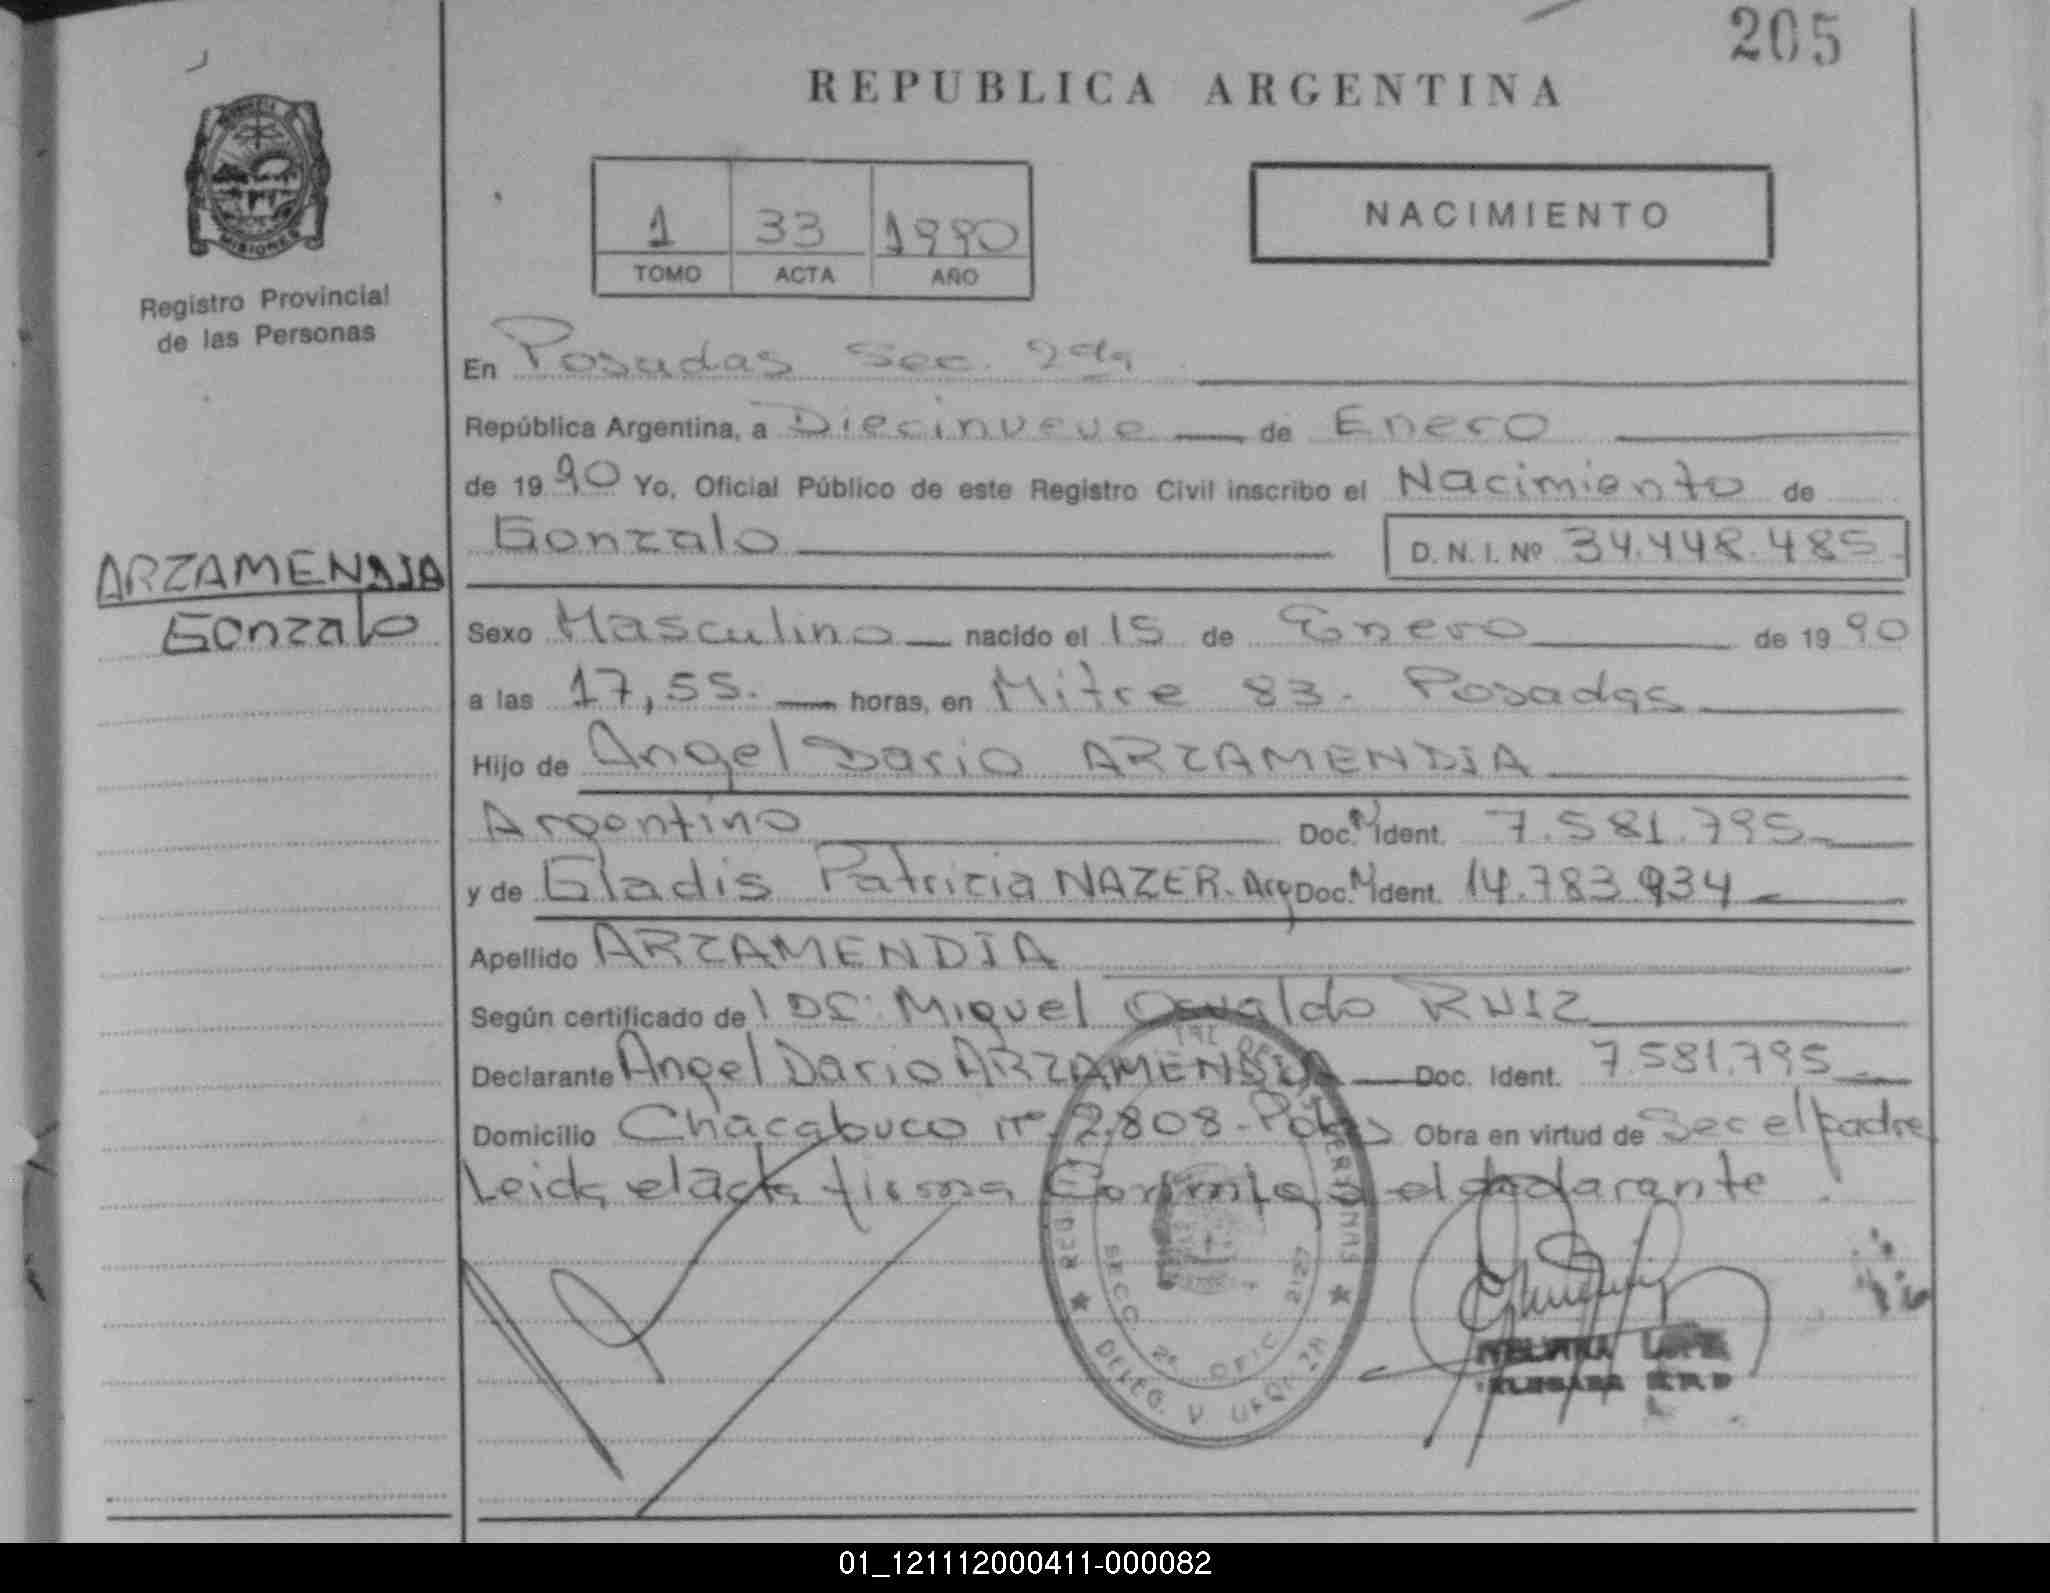 205
REPUBLICA ARGENTINA
MISIONES
Registro Provincial
de las Personas
1 33 1990
TOMO ACTA AÑO
NACIMIENTO
En Posadas Sec. 2da
República Argentina, a Diecinueve de Enero
de 1990 Yo, Oficial Público de este Registro Civil inscribo el Nacimiento de
Gonzalo D. N. I. Nº 34.448.485
ARZAMENDIA
Gonzalo
Sexo Masculino nacido el 15 de Enero de 1990
a las 17,55. horas, en Mitre 83. Posadas
Hijo de Angel Dario ARZAMENDIA
Argentino Doc. M Ident. 7.581.795
y de Gladis Patricia NAZER. Arg Doc. M Ident. 14.783.934
Apellido ARZAMENDIA
Según certificado de Dr. Miguel Osvaldo RUIZ
Declarante Angel Dario ARZAMENDIA Doc. Ident. 7.581.795
Domicilio Chacabuco nº 2.808 - Pdas Obra en virtud de Ser el padre
Leida el acta firma Conmigo el declarante.
SECC. 2ª OFIC. 2127
DELEG. V. URQUIZA
01_121112000411-000082